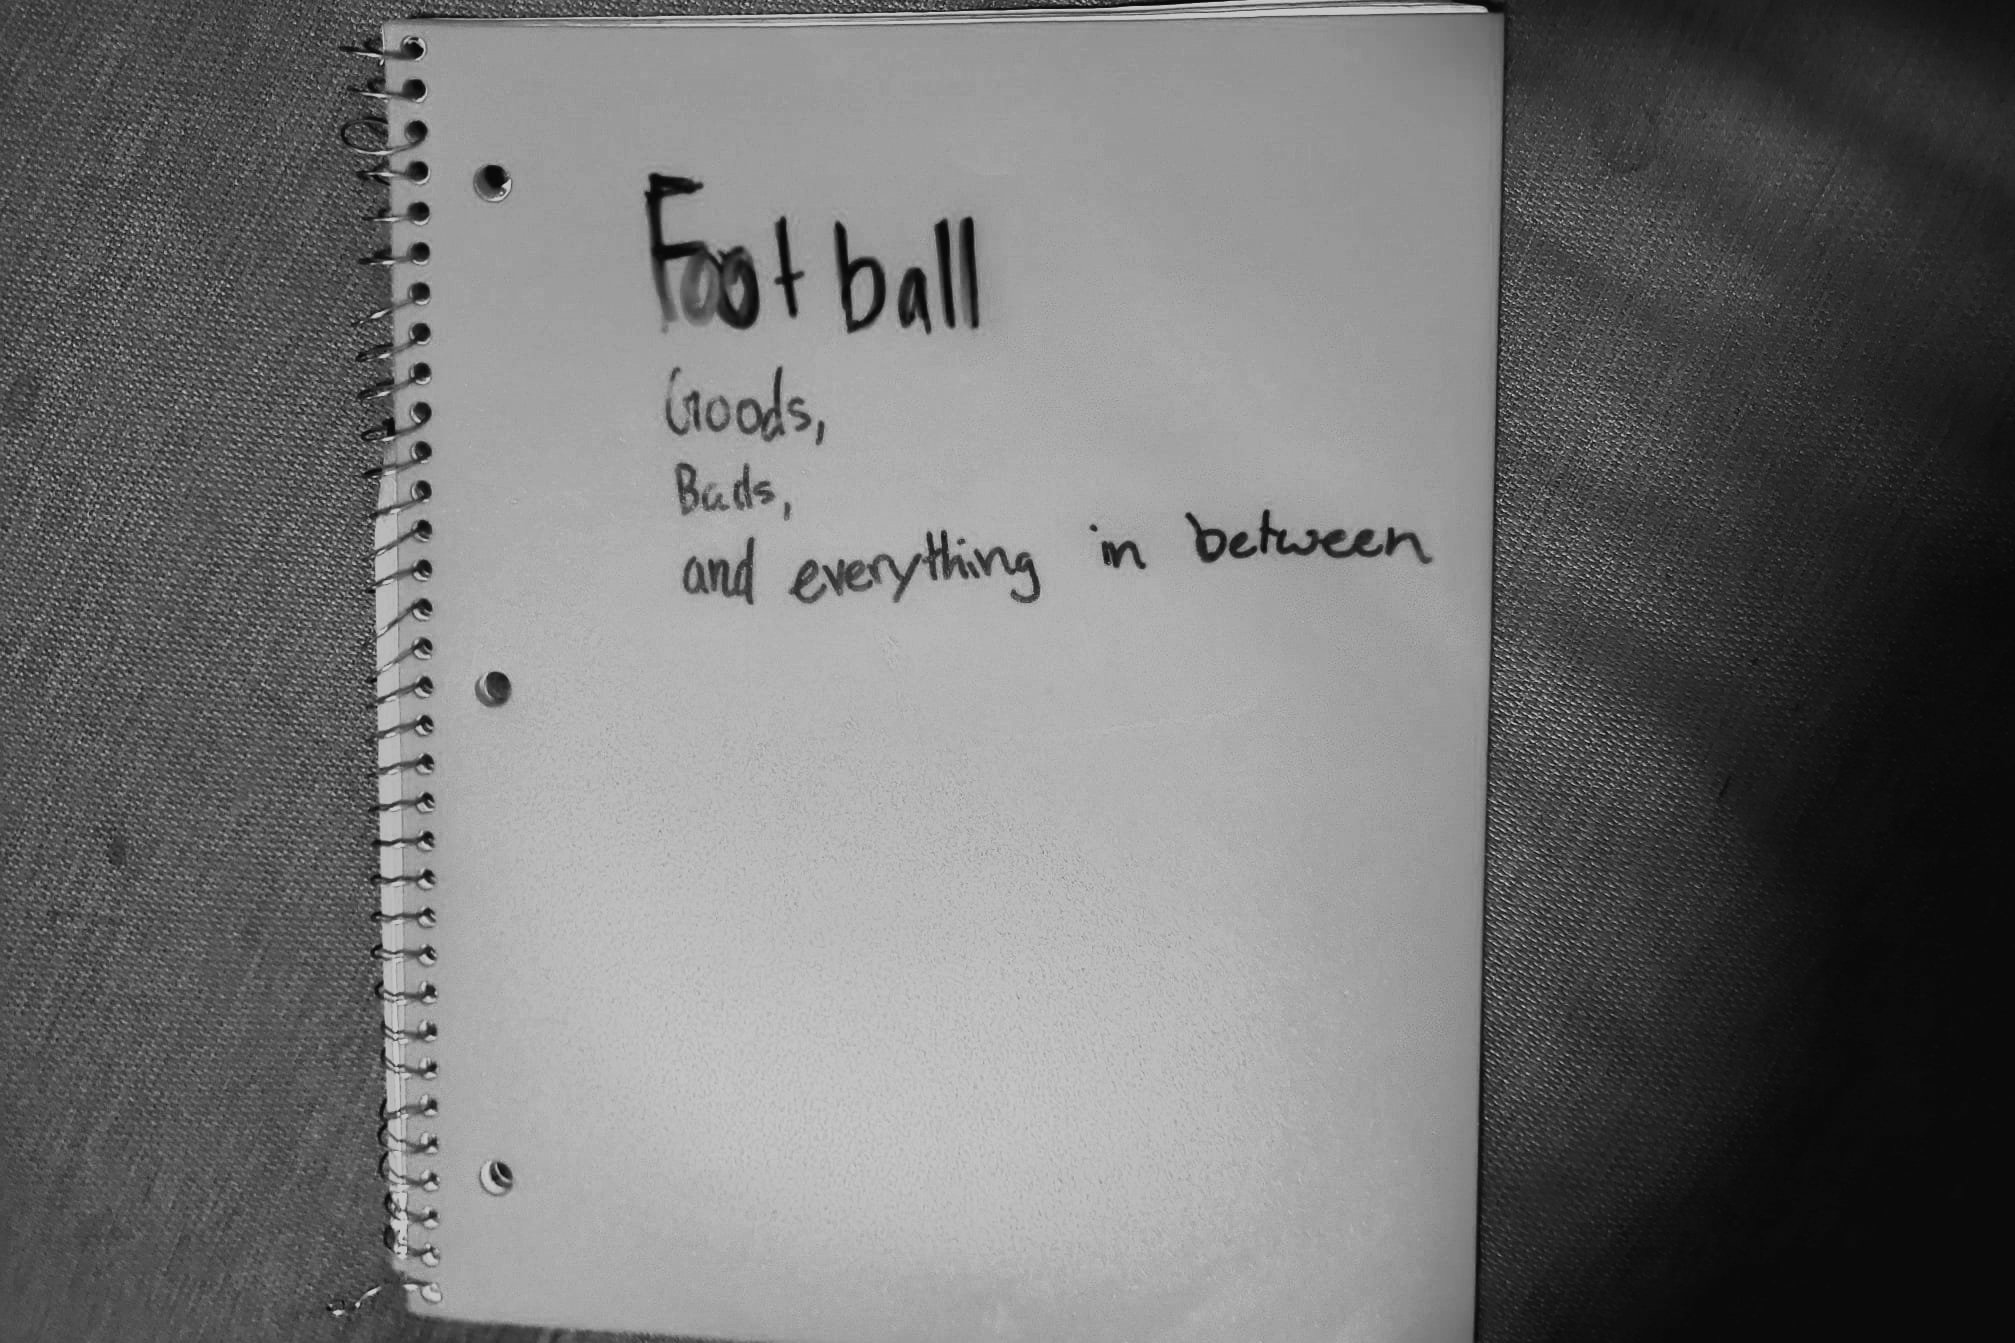 Football
Goods,
Bads,
and everything in between